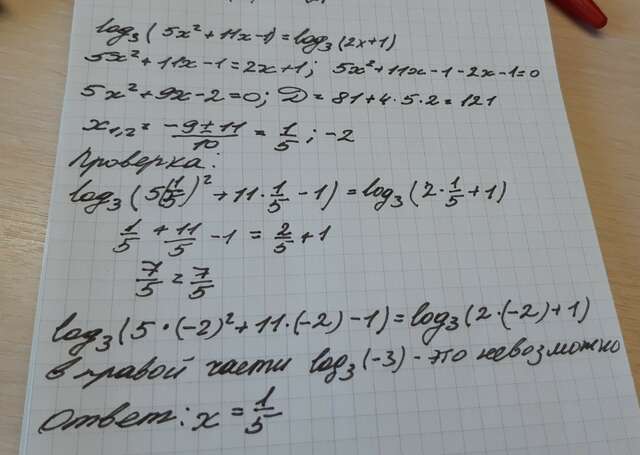 log₃(5x²+11x-1)=log₃(2x+1)
5x²+11x-1=2x+1; 5x²+11x-1-2x-1=0
5x²+9x-2=0; D=81+4·5·2=121
x₁,₂=(-9±11)/10=1/5; -2
Проверка:
log₃(5(1/5)²+11·1/5-1)=log₃(2·1/5+1)
1/5+11/5-1=2/5+1
7/5=7/5
log₃(5·(-2)²+11·(-2)-1)=log₃(2·(-2)+1)
в правой части log₃(-3)-это невозможно
Ответ: x=1/5